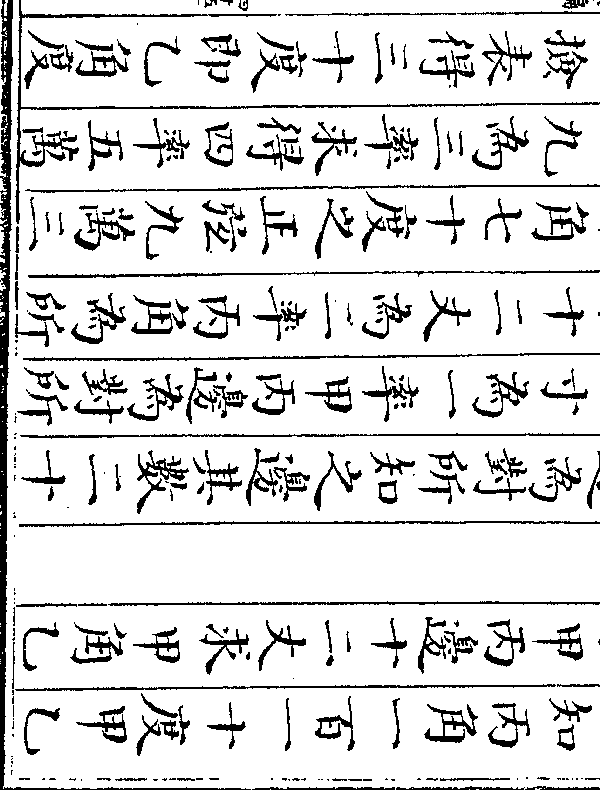 知丙角一百一十度甲乙
甲丙邊十二丈求甲角乙
為對所知之邊其數二十
寸為一率甲丙邊為對所
十二丈為二率丙角為所
角七十度之正弦九萬三
九為三率求得四率五萬
撿表得三十度即乙角度